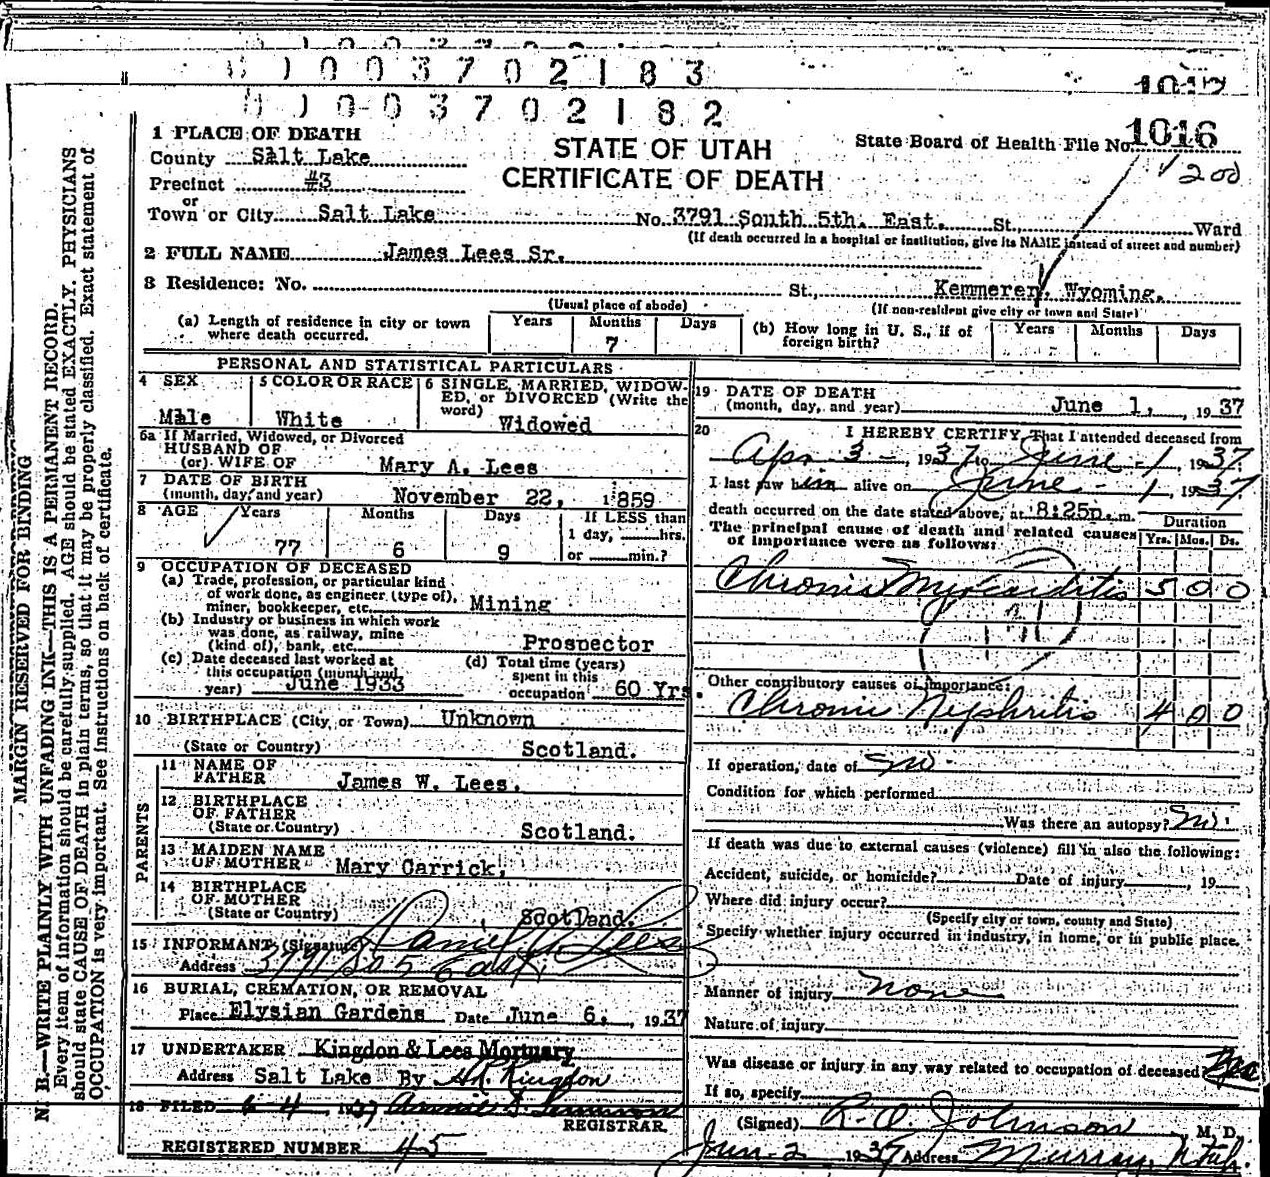 0 1 0 0 3 7 0 2 1 8 3
1017
0 1 0 0 3 7 0 2 1 8 2
1 PLACE OF DEATH
County Salt Lake
Precinct #3
or
Town or City Salt Lake No. 3791 South 5th. East. St., Ward
STATE OF UTAH
CERTIFICATE OF DEATH
State Board of Health File No. 1016
200
(If death occurred in a hospital or institution, give its NAME instead of street and number)
2 FULL NAME James Lees Sr.
3 Residence: No. St., Kemmerer, Wyoming.
(Usual place of abode) (If non-resident give city or town and State)
(a) Length of residence in city or town where death occurred. Years Months 7 Days
(b) How long in U. S., if of foreign birth? Years Months Days
PERSONAL AND STATISTICAL PARTICULARS
4 SEX Male
5 COLOR OR RACE White
6 SINGLE, MARRIED, WIDOWED, or DIVORCED (Write the word) Widowed
6a If Married, Widowed, or Divorced
HUSBAND OF
(or) WIFE OF Mary A. Lees
7 DATE OF BIRTH
(month, day, and year) November 22, 1859
8 AGE Years 77 Months 6 Days 9 If LESS than 1 day, hrs. or min.?
9 OCCUPATION OF DECEASED
(a) Trade, profession, or particular kind
of work done, as engineer (type of),
miner, bookkeeper, etc. Mining
(b) Industry or business in which work
was done, as railway, mine
(kind of), bank, etc. Prospector
(c) Date deceased last worked at
this occupation (month and
year) June 1933
(d) Total time (years)
spent in this
occupation 60 Yrs.
10 BIRTHPLACE (City or Town) Unknown
(State or Country) Scotland.
PARENTS
11 NAME OF
FATHER James W. Lees.
12 BIRTHPLACE
OF FATHER
(State or Country) Scotland.
13 MAIDEN NAME
OF MOTHER Mary Carrick,
14 BIRTHPLACE
OF MOTHER
(State or Country) Scotland.
15 INFORMANT (Signature) Daniel Lees
Address 3791 So 5 East,
16 BURIAL, CREMATION, OR REMOVAL
Place Elysian Gardens Date June 6, 1937
17 UNDERTAKER Kingdon & Lees Mortuary
Address Salt Lake By Kingdon
18 FILED 6-4, 1937 Annie
REGISTRAR.
REGISTERED NUMBER 45
19 DATE OF DEATH
(month, day, and year) June 1, 1937
20 I HEREBY CERTIFY, That I attended deceased from
Apr 3 - 1937 to June - 1, 1937
I last saw him alive on June - 1, 1937
death occurred on the date stated above, at 8:25p. m.
The principal cause of death and related causes
of importance were as follows:
Duration
Yrs. Mos. Ds.
Chronic Myocarditis 5 0 0
Other contributory causes of importance:
Chronic Nephritis 4 0 0
If operation, date of no.
Condition for which performed
Was there an autopsy? No.
If death was due to external causes (violence) fill in also the following:
Accident, suicide, or homicide? Date of injury , 19
Where did injury occur?
(Specify city or town, county and State)
Specify whether injury occurred in industry, in home, or in public place.
Manner of injury none
Nature of injury
Was disease or injury in any way related to occupation of deceased?
If so, specify
(Signed) R. O. Johnson M. D.
Jun-2 1937 Address Murray, Utah.
MARGIN RESERVED FOR BINDING
N. B.—WRITE PLAINLY WITH UNFADING INK—THIS IS A PERMANENT RECORD.
Every item of information should be carefully supplied. AGE should be stated EXACTLY. PHYSICIANS
should state CAUSE OF DEATH in plain terms, so that it may be properly classified. Exact statement of
OCCUPATION is very important. See instructions on back of certificate.